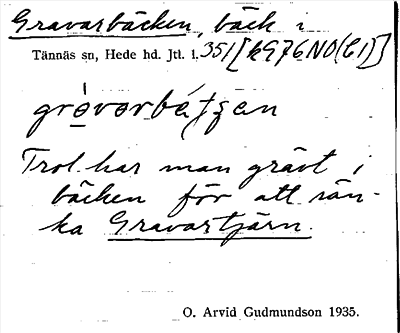 Gravarbäcken, bäck i
Tännäs sn, Hede hd. Jtl. l. 351 [kG976NO(C1)]
Trol. har man grävt i
bäcken för att sän-
ka Gravartjärn.
O. Arvid Gudmundson 1935.